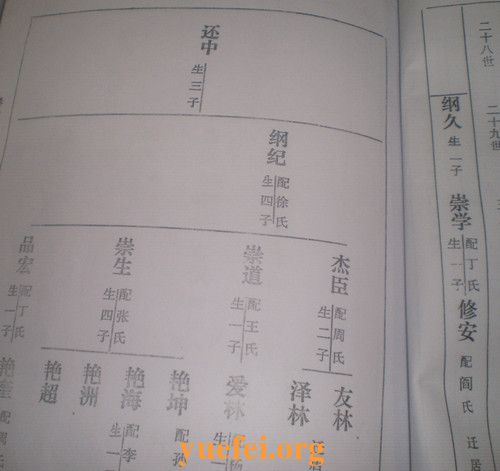 二十八世
二十九世
纲久
生一子
崇学
配丁氏
生一子
修安
配阎氏
迁居
还中
生三子
纲纪
配徐氏
生四子
杰臣
配周氏
生二子
崇道
配王氏
生一子
崇生
配张氏
生四子
品宏
配丁氏
生一子
友林
泽林
爱林
生一
艳坤
配孙
艳海
配李
生一
艳洲
艳超
配周
yuefei.org